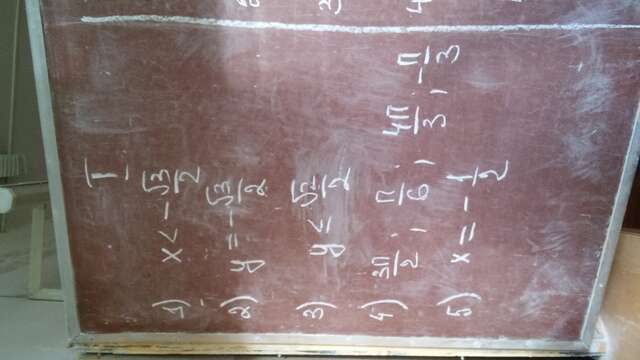 I
1) x < -√3/2
2) y = -√3/2
3) y ≤ √2/2
4) 3π/2 ; π/6 ; 4π/3 ; -π/3
5) x = -1/2